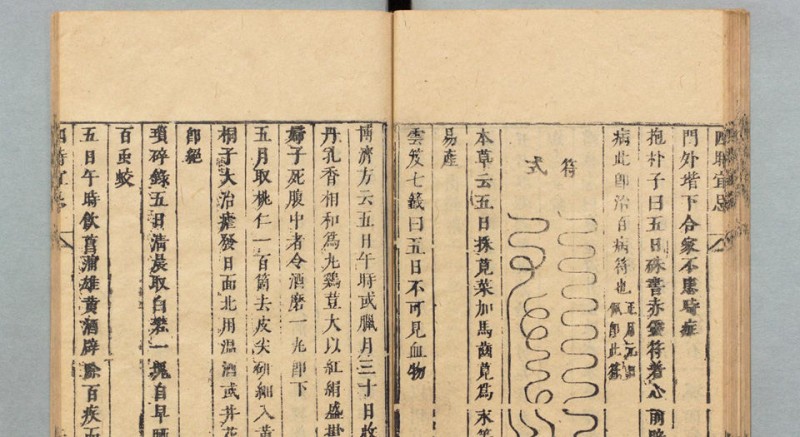 四時宜忌
門外堦下合家不患時症
抱朴子曰五日硃書赤靈符着心前
病此卽治百病符也
符式
本草云五日採莧菜加馬齒莧爲末等
易產
雲笈七籤曰五日不可見血物
博濟方云五日午時或臘月三十日收
丹乳香相和爲丸鷄荳大以紅絹盛掛
婦子死腹中者令酒磨一丸卽下
五月取桃仁一百箇去皮尖硏細入黃
桐子大治瘧發日面北用溫酒或井花
卽絕
瑣碎錄五日清晨取白礬一塊自早晒
百虫蛟
五日午時飲菖蒲雄黃酒辟除百疾而
四時宜忌